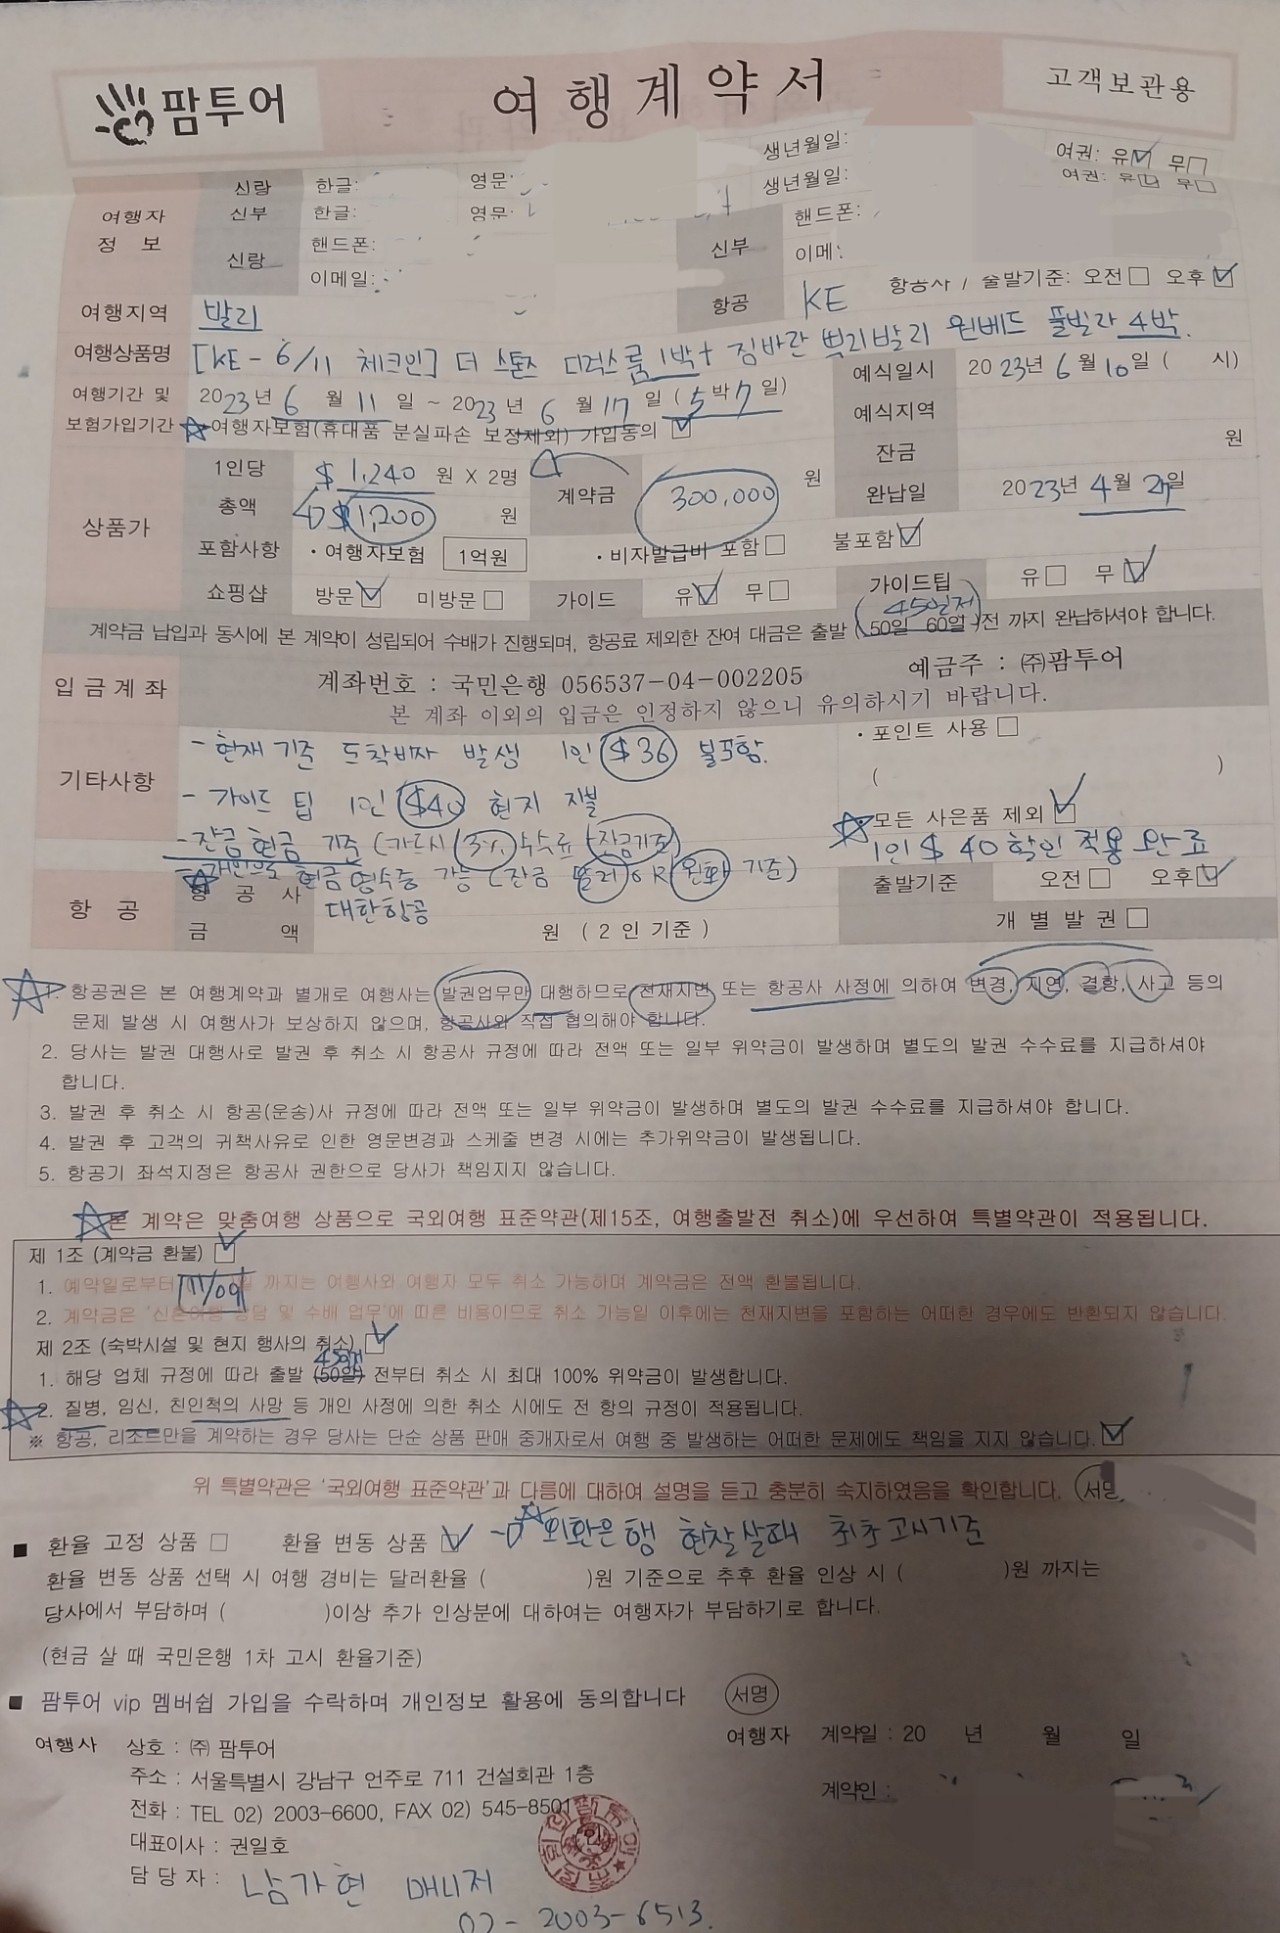 팜투어 여행계약서 고객보관용
여행자 정보 신랑 한글: 영문: 생년월일: 여권: 유☑ 무☐
신부 한글: 영문: 생년월일: 여권: 유☑ 무☐
신랑 핸드폰: 신부 핸드폰:
이메일: 이메:
여행지역 발리 항공 KE 항공사 / 출발기준: 오전☐ 오후☑
여행상품명 [KE - 6/11 체크인] 더 스톤즈 디럭스룸 1박 + 짐바란 발리 원베드 풀빌라 4박.
여행기간 및 보험가입기간 2023년 6월 11일 ~ 2023년 6월 17일 (5박 7일) 예식일시 2023년 6월 10일 ( 시)
여행자보험(휴대품 분실파손 보장제외) 가입동의 ☑ 예식지역
상품가 1인당 $ 1,240 원 X 2명 계약금 300,000 원 잔금 원
총액 $1,200 원 완납일 2023년 4월 일
포함사항 · 여행자보험 1억원 · 비자발급비 포함☐ 불포함☑
쇼핑샵 방문☑ 미방문☐ 가이드 유☑ 무☐ 가이드팁 유☐ 무☑
계약금 납입과 동시에 본 계약이 성립되어 수배가 진행되며, 항공료 제외한 잔여 대금은 출발 (50일 60일) 45일전 전 까지 완납하셔야 합니다.
입금계좌 계좌번호 : 국민은행 056537-04-002205 예금주 : ㈜팜투어
본 계좌 이외의 입금은 인정하지 않으니 유의하시기 바랍니다.
기타사항 - 현재 기준 도착비자 발생 1인 $36 불포함. · 포인트 사용☐
( )
- 가이드 팁 1인 $40 현지 지불 모든 사은품 제외☑
- 잔금 현금 기준 (카드시 3% 수수료 + 잔금기준) 1인 $ 40 할인 적용 완료
현금 영수증 가능 (잔금 달러 OR 원화 기준)
항공 항공사 대한항공 출발기준 오전☐ 오후☑
금액 원 (2인 기준) 개별발권☐
1. 항공권은 본 여행계약과 별개로 여행사는 발권업무만 대행하므로 천재지변 또는 항공사 사정에 의하여 변경, 지연, 결항, 사고 등의
문제 발생 시 여행사가 보상하지 않으며, 항공사와 직접 협의해야 합니다.
2. 당사는 발권 대행사로 발권 후 취소 시 항공사 규정에 따라 전액 또는 일부 위약금이 발생하며 별도의 발권 수수료를 지급하셔야
합니다.
3. 발권 후 취소 시 항공(운송)사 규정에 따라 전액 또는 일부 위약금이 발생하며 별도의 발권 수수료를 지급하셔야 합니다.
4. 발권 후 고객의 귀책사유로 인한 영문변경과 스케줄 변경 시에는 추가위약금이 발생됩니다.
5. 항공기 좌석지정은 항공사 권한으로 당사가 책임지지 않습니다.
본 계약은 맞춤여행 상품으로 국외여행 표준약관(제15조, 여행출발전 취소)에 우선하여 특별약관이 적용됩니다.
제 1조 (계약금 환불) ☑
1. 예약일로부터 11/09 일 까지는 여행사와 여행자 모두 취소 가능하며 계약금은 전액 환불됩니다.
2. 계약금은 '신혼여행 상담 및 수배 업무'에 따른 비용이므로 취소 가능일 이후에는 천재지변을 포함하는 어떠한 경우에도 반환되지 않습니다.
제 2조 (숙박시설 및 현지 행사의 취소) ☑
1. 해당 업체 규정에 따라 출발 (50일) 45일전 전부터 취소 시 최대 100% 위약금이 발생합니다.
2. 질병, 임신, 친인척의 사망 등 개인 사정에 의한 취소 시에도 전 항의 규정이 적용됩니다.
※ 항공, 리조트만을 계약하는 경우 당사는 단순 상품 판매 중개자로서 여행 중 발생하는 어떠한 문제에도 책임을 지지 않습니다. ☑
위 특별약관은 '국외여행 표준약관'과 다름에 대하여 설명을 듣고 충분히 숙지하였음을 확인합니다. 서명
■ 환율 고정 상품 ☐ 환율 변동 상품 ☑ → 외환은행 현찰 살때 최초고시기준
환율 변동 상품 선택 시 여행 경비는 달러환율 ( )원 기준으로 추후 환율 인상 시 ( )원 까지는
당사에서 부담하며 ( )이상 추가 인상분에 대하여는 여행자가 부담하기로 합니다.
(현금 살 때 국민은행 1차 고시 환율기준)
■ 팜투어 vip 멤버쉽 가입을 수락하며 개인정보 활용에 동의합니다 서명
여행사 상호 : ㈜ 팜투어 여행자 계약일 : 20 년 월 일
주소 : 서울특별시 강남구 언주로 711 건설회관 1층 계약인 :
전화 : TEL 02) 2003-6600, FAX 02) 545-8501
대표이사 : 권일호
담당자 : 남가현 매니저
02-2003-6513.